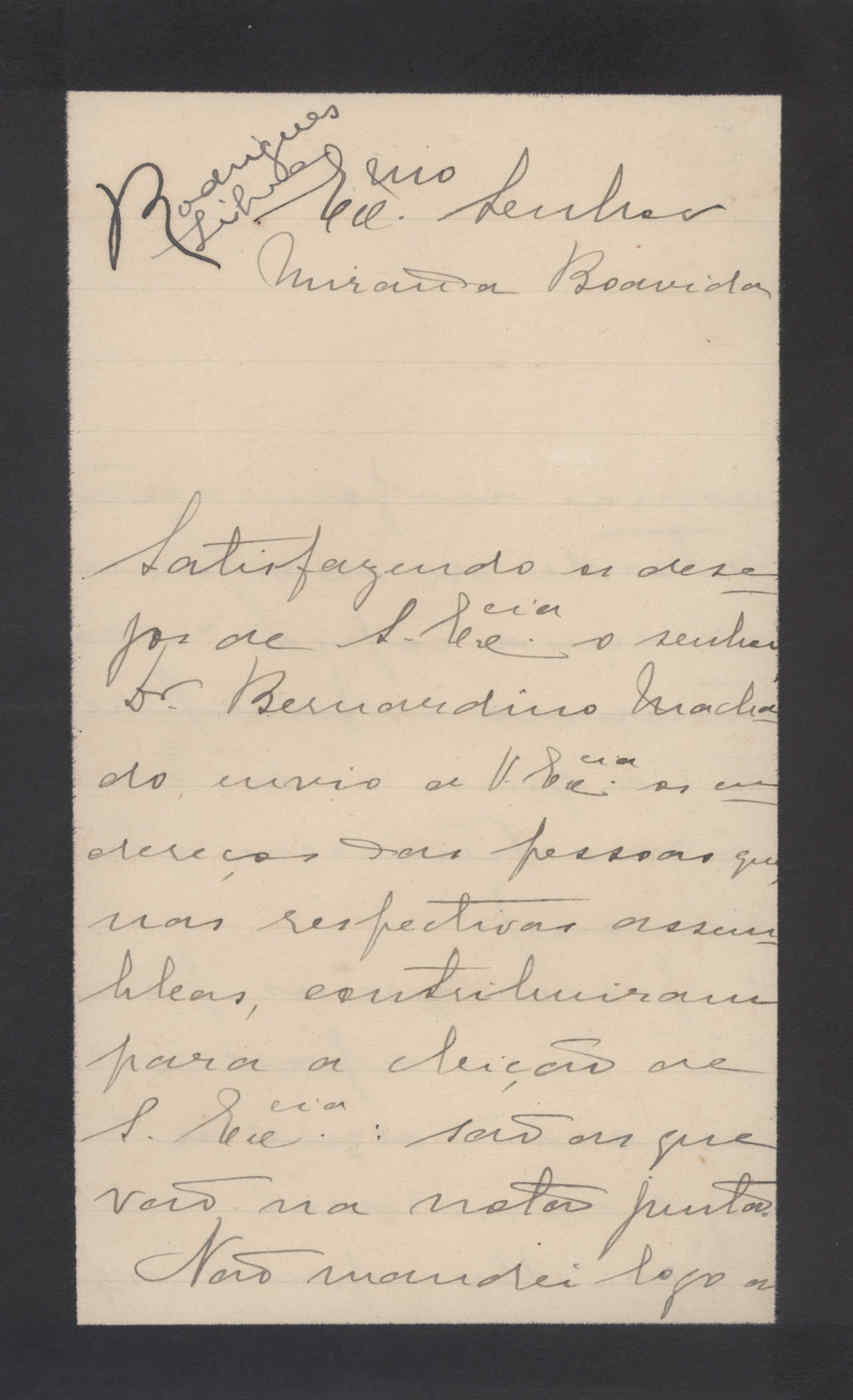 Rodrigues
Silva
Exc.mo Senhor
Miranda Boavida
Satisfazendo os dese-
jos de S. Exc.cia o senhor
Dr. Bernardino Macha-
do, envio a V. Exc.cia os en-
dereços das pessoas que,
nas respectivas assem-
bleas, contribuiram
para a eleição de
S. Exc.cia : são os que
vão na nota junta.
Não mandei logo a